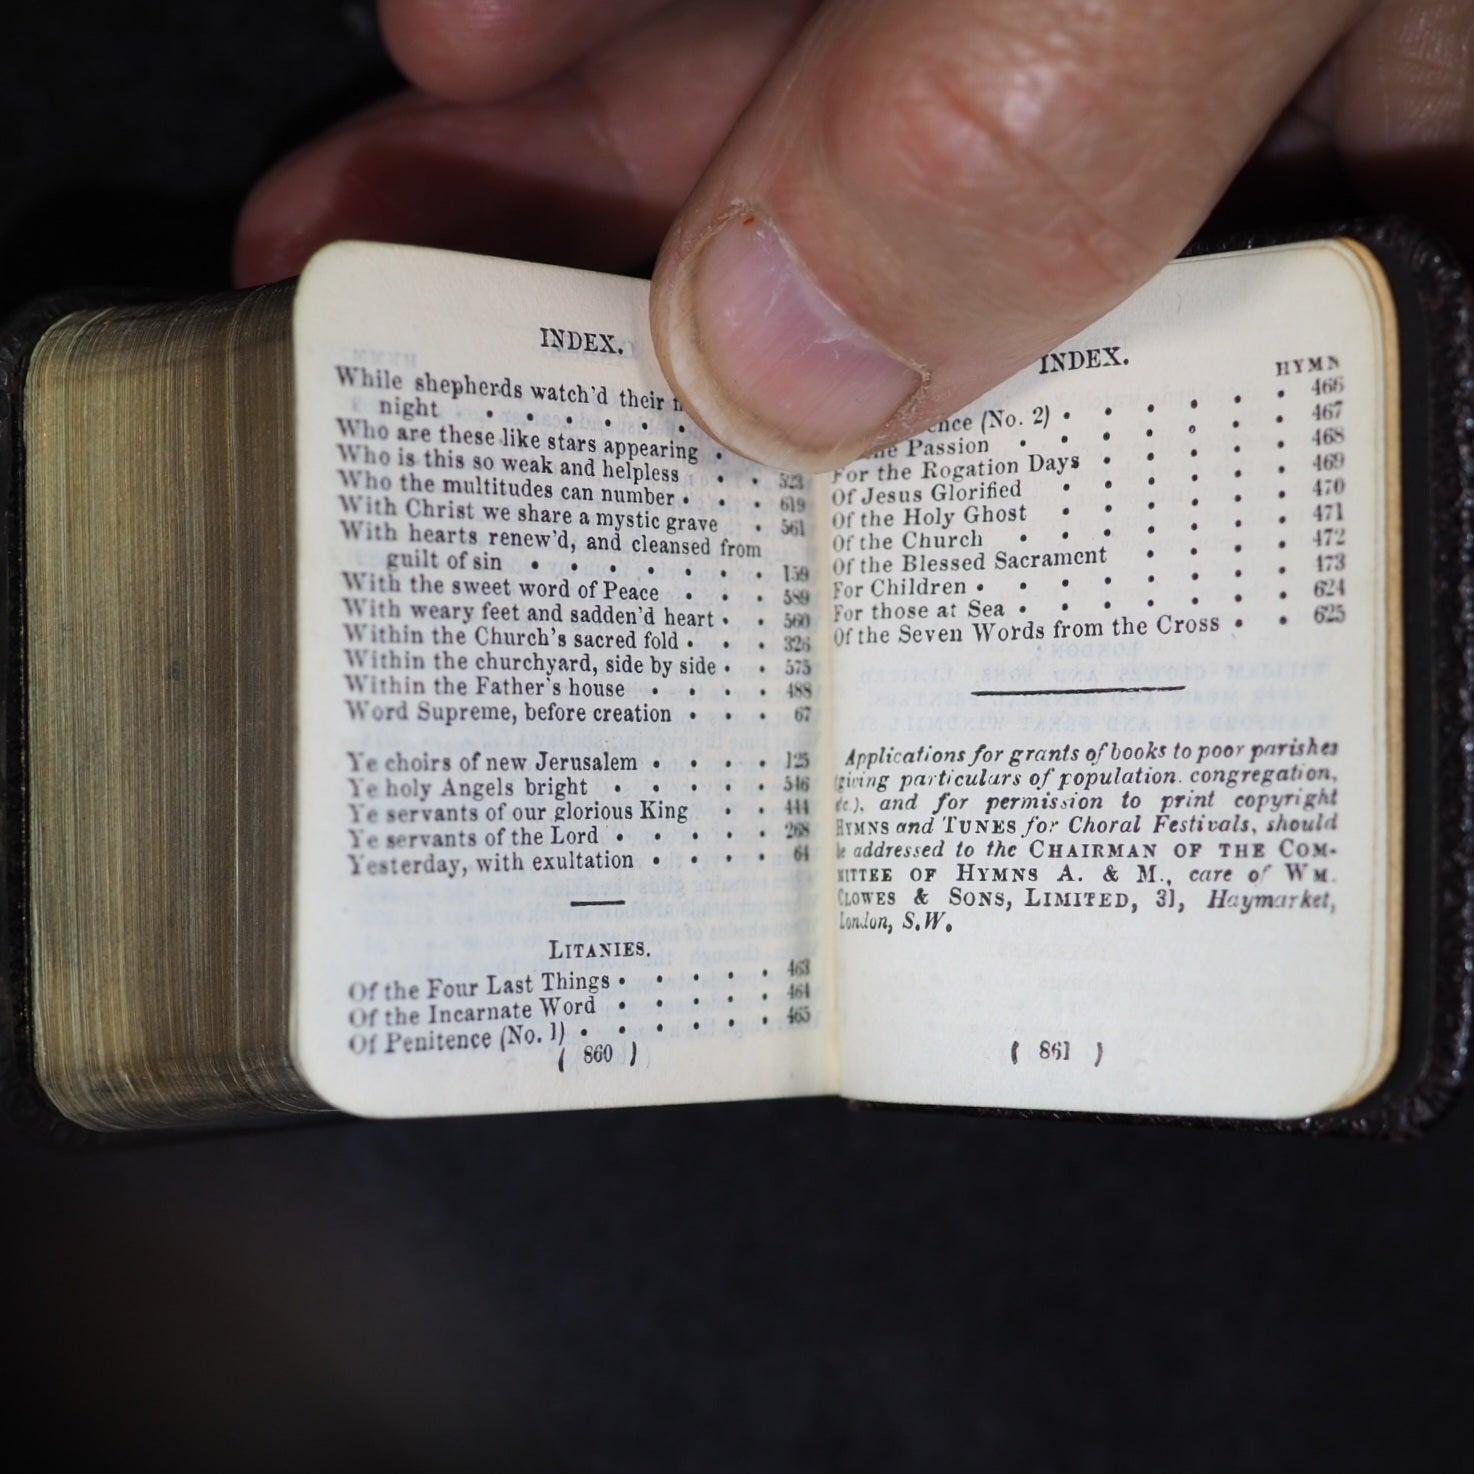 INDEX.
While shepherds watch'd their
night . . . . . .
Who are these like stars appearing .
Who is this so weak and helpless . .
Who the multitudes can number . . . 523
With Christ we share a mystic grave . 619
With hearts renew'd, and cleansed from 561
guilt of sin . . . . . . . 159
With the sweet word of Peace . . . 589
With weary feet and sadden'd heart . . 560
Within the Church's sacred fold . . . 326
Within the churchyard, side by side . . 575
Within the Father's house . . . . 488
Word Supreme, before creation . . . 67
Ye choirs of new Jerusalem . . . . 125
Ye holy Angels bright . . . . . 546
Ye servants of our glorious King . . 444
Ye servants of the Lord . . . . . 268
Yesterday, with exultation . . . . 64
LITANIES.
Of the Four Last Things . . . . . 463
Of the Incarnate Word . . . . . 464
Of Penitence (No. 1) . . . . . . 465
( 860 )
INDEX.
HYMN
(No. 2) . . . . . . 466
Passion . . . . . . . 467
For the Rogation Days . . . . . 468
Of Jesus Glorified . . . . . . 469
Of the Holy Ghost . . . . . . 470
Of the Church . . . . . . . 471
Of the Blessed Sacrament . . . . 472
For Children . . . . . . . . 473
For those at Sea . . . . . . . 624
Of the Seven Words from the Cross . . 625
Applications for grants of books to poor parishes
(giving particulars of population. congregation,
&c.), and for permission to print copyright
HYMNS and TUNES for Choral Festivals, should
be addressed to the CHAIRMAN OF THE COM-
MITTEE OF HYMNS A. & M., care of WM.
CLOWES & SONS, LIMITED, 31, Haymarket,
London, S.W.
( 861 )